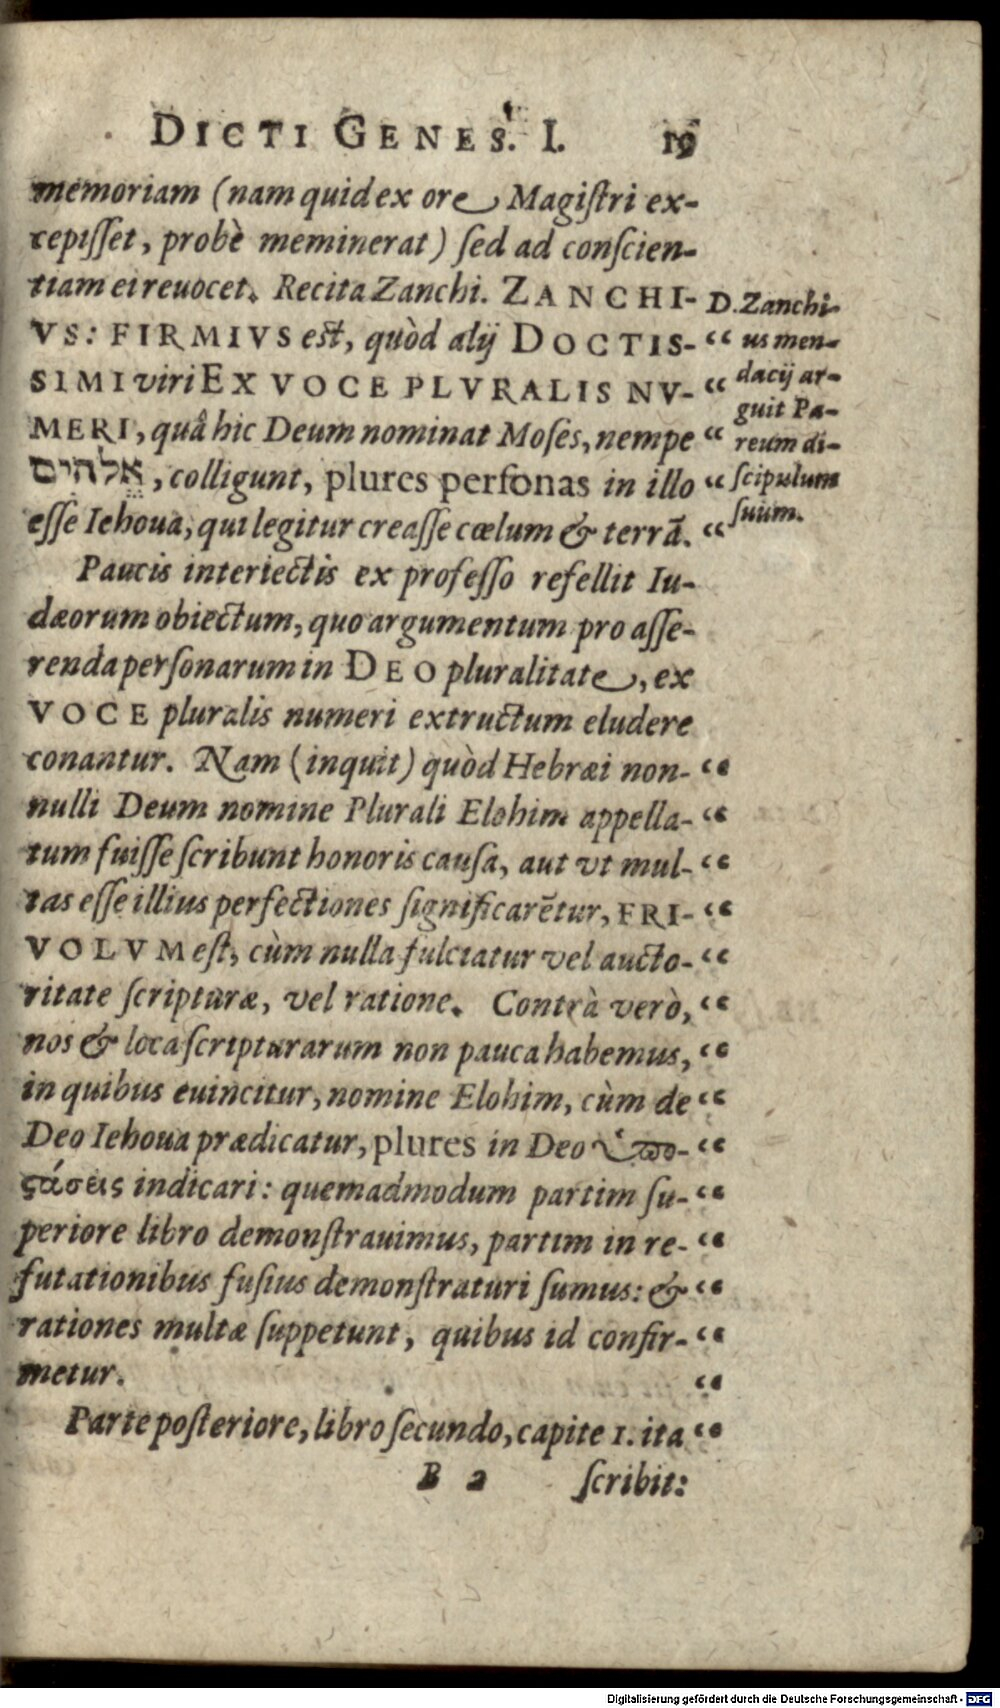 DICTI GENES. I. 19
memoriam (nam quid ex ore Magiſtri ex-
cepiſſet, probè meminerat) ſed ad conſcien-
tiam ei reuocet. Recita Zanchi. ZANCHI-
VS: FIRMIVS est, quòd alij DOCTIS- “
SIMI viri EX VOCE PLVRALIS NV- “
MERI, quâ hic Deum nominat Moſes, nempe “
אֱלֹהִים, colligunt, plures perſonas in illo “
eſſe Iehoua, qui legitur creaſſe cœlum & terrã. “
D. Zanchi-
us men-
dacij ar-
guit Pa-
reum di-
ſcipulum
ſuum.
Paucis interiectis ex profeſſo refellit Iu-
dæorum obiectum, quo argumentum pro aſſe-
renda perſonarum in DEO pluralitate, ex
VOCE pluralis numeri extructum eludere
conantur. Nam (inquit) quòd Hebræi non- “
nulli Deum nomine Plurali Elohim appella- “
tum fuiſſe ſcribunt honoris cauſa, aut vt mul- “
tas eſſe illius perfectiones ſignificarẽtur, FRI- “
VOLVM eſt, cùm nulla fulciatur vel aucto- “
ritate ſcripturæ, vel ratione. Contrà verò, “
nos & loca ſcripturarum non pauca habemus, “
in quibus euincitur, nomine Elohim, cùm de “
Deo Iehoua prædicatur, plures in Deo ὑπο- “
ςάσεις indicari: quemadmodum partim ſu- “
periore libro demonſtrauimus, partim in re- “
futationibus fuſius demonſtraturi ſumus: & “
rationes multæ ſuppetunt, quibus id confir- “
metur. “
Parte poſteriore, libro ſecundo, capite 1. ita “
B 2 ſcribit:
Digitalisierung gefördert durch die Deutsche Forschungsgemeinschaft - DFG